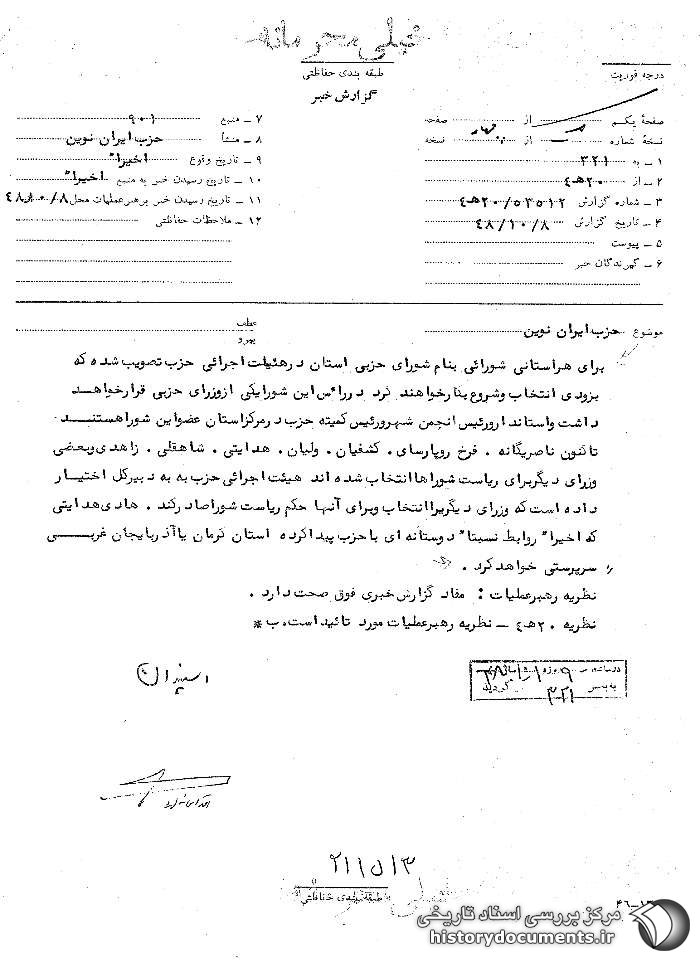 خیلی محرمانه
طبقه بندی حفاظتی
گزارش خبر
درجه فوریت
صفحهٔ یکم از صفحه
نسخهٔ شماره از چهار نسخه
۱ - به ۳۲۱
۲ - از ۲۰هـ۴
۳ - شماره گزارش ۲۰/۵۳۵۱۲هـ۴
۴ - تاریخ گزارش ۴۸/۱۰/۸
۵ - پیوست
۶ - گیرندگان خبر
۷ - منبع ۹۰۱
۸ - منشأ حزب ایران نوین
۹ - تاریخ وقوع اخیرا"
۱۰ - تاریخ رسیدن خبر به منبع اخیرا"
۱۱ - تاریخ رسیدن خبر برهبر عملیات محل ۴۸/۱۰/۸
۱۲ - ملاحظات حفاظتی
موضوع حزب ایران نوین
عطف
پیرو
برای هراستانی شورائی بنام شورای حزبی استان درهیئات اجرائی حزب تصویب شده که
بزودی انتخاب وشروع بکارخواهند کرد درراس این شورایکی ازوزرای حزبی قرارخواهد
داشت واستاندارورئیس انجمن شهرورئیس کمیته حزب درمرکزاستان عضواین شوراهستند
تاکنون ناصریگانه . فرخ روپارسای . کشفیان . ولیان . هدایتی . شاهقلی . زاهدی وبعضی
وزرای دیگربرای ریاست شوراهاانتخاب شده اند هیئت اجرائی حزب به به دبیرکل اختیار
داده است که وزرای دیگریراانتخاب وبرای آنها حکم ریاست شوراصادرکند . هادی هدایتی
که اخیرا" روابط نسبتا" دوستانه ای باحزب پیداکرده استان کرمان یاآذربایجان غربی
سرپرستی خواهدکرد .
نظریه رهبرعملیات : مفاد گزارش خبری فوق صحت دارد .
نظریه ۲۰هـ۴ - نظریه رهبرعملیات مورد تائیداست. ب *
به بخش ۳۲۱
۲۱۱۵۱۳
طبقه بندی حفاظتی
مرکز بررسی اسناد تاریخی
historydocuments.ir